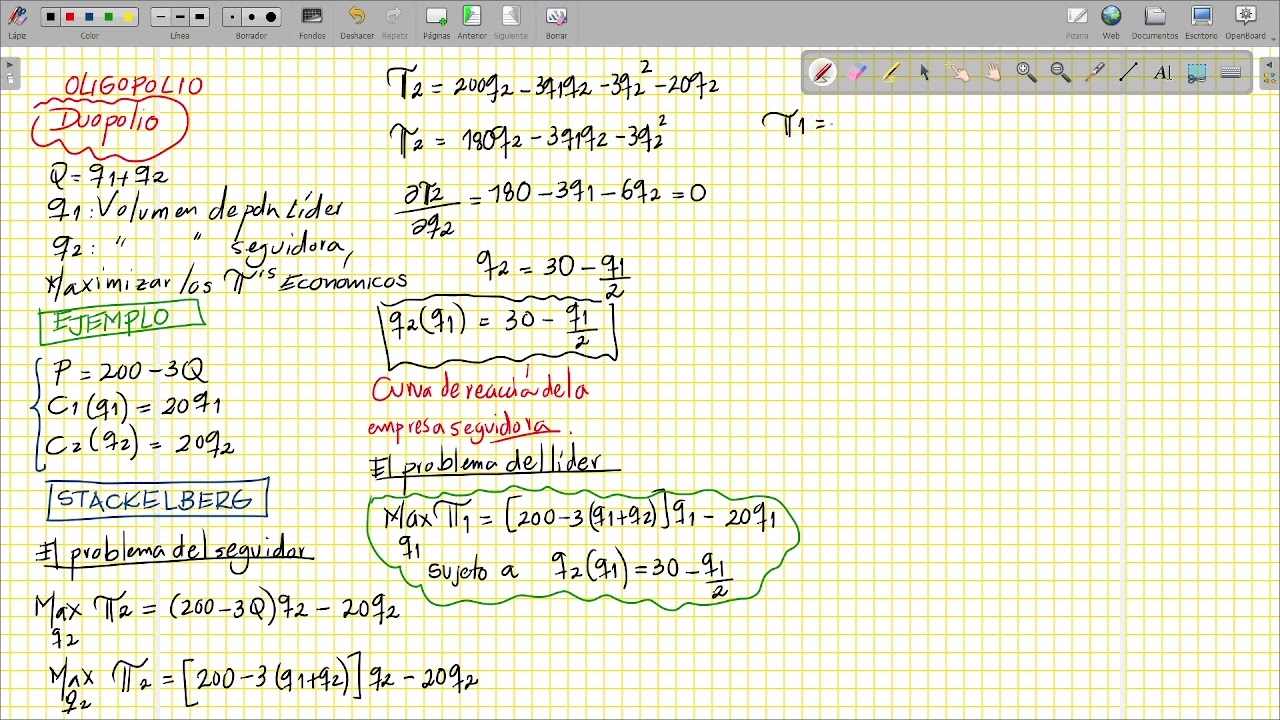 Lápiz
Color
Línea
Borrador
Fondos
Deshacer
Repetir
Páginas
Anterior
Siguiente
Borrar
Pizarra
Web
Documentos
Escritorio
OpenBoard
OLIGOPOLIO
Duopolio
Q = q1 + q2
q1 : Volumen de pdn Líder
q2 : " " seguidora,
Maximizar los π's Económicos
EJEMPLO
P = 200 - 3Q
C1(q1) = 20q1
C2(q2) = 20q2
STACKELBERG
El problema del seguidor
Max π2 = (200 - 3Q)q2 - 20q2
q2
Max π2 = [200 - 3(q1+q2)] q2 - 20q2
q2
π2 = 200q2 - 3q1q2 - 3q2² - 20q2
π2 = 180q2 - 3q1q2 - 3q2²
∂π2/∂q2 = 180 - 3q1 - 6q2 = 0
q2 = 30 - q1/2
q2(q1) = 30 - q1/2
Curva de reacción de la
empresa seguidora.
El problema del líder
Max π1 = [200 - 3(q1+q2)]q1 - 20q1
q1
sujeto a q2(q1) = 30 - q1/2
π1 =